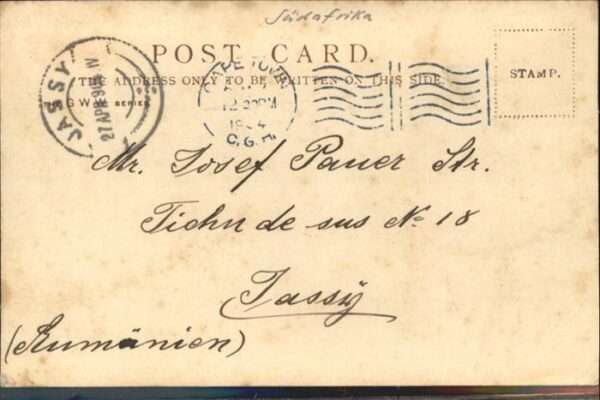 Südafrika
POST CARD.
THE ADDRESS ONLY TO BE WRITTEN ON THIS SIDE.
G W SERIES
STAMP.
JASSY
27 APR
CAPE TOWN
12 30PM
1904
C.G.H
Mr. Josef Pauer Str.
Tichn de sus No 18
Jassÿ
(Rumänien)